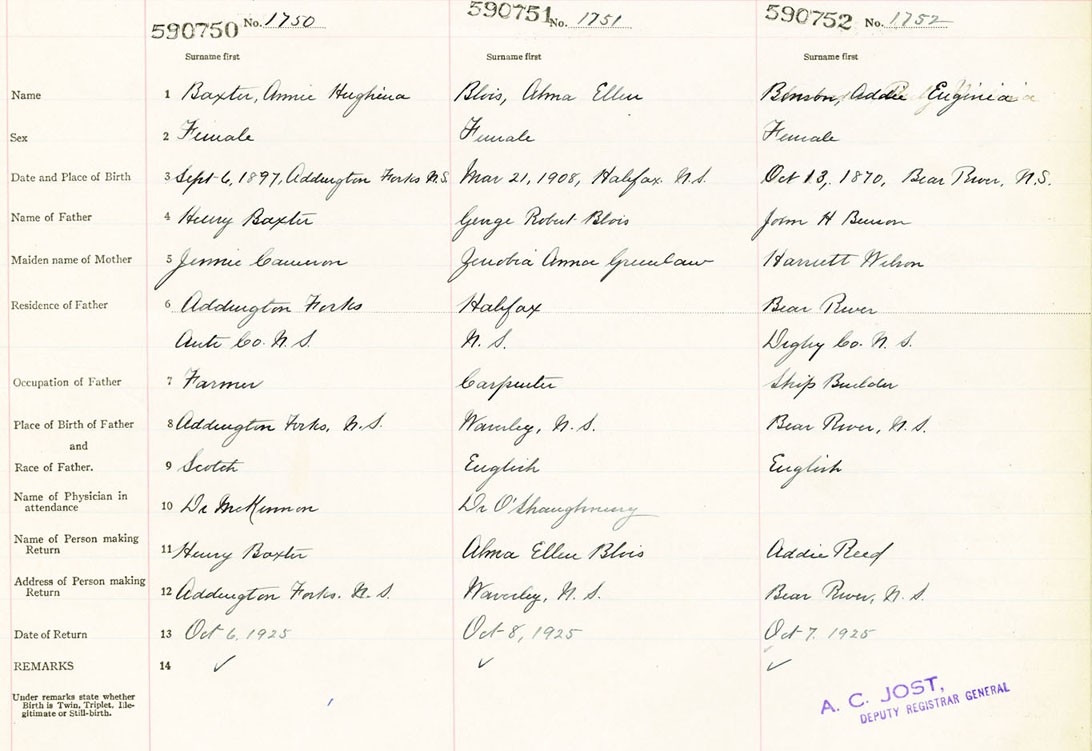 590750 No. 1750 590751 No. 1751 590752 No. 1752
Surname first Surname first Surname first
Name 1 Baxter, Annie Hughina Blois, Alma Ellen Benson, Addie Euginia
Sex 2 Female Female Female
Date and Place of Birth 3 Sept 6, 1897, Addington Forks N.S. Mar 21, 1908, Halifax. N.S. Oct 13, 1870, Bear River, N.S.
Name of Father 4 Henry Baxter George Robert Blois John H Benson
Maiden name of Mother 5 Jennie Cameron Zenobia Anna Greenlaw Harriett Wilson
Residence of Father 6 Addington Forks Halifax Bear River
Ant. Co. N.S. N.S. Digby Co. N.S.
Occupation of Father 7 Farmer Carpenter Ship Builder
Place of Birth of Father 8 Addington Forks, N.S. Waverley, N.S. Bear River, N.S.
and
Race of Father. 9 Scotch English English
Name of Physician in
attendance 10 Dr McKinnon Dr O'Shaughnessy
Name of Person making
Return 11 Henry Baxter Alma Ellen Blois Addie Reed
Address of Person making
Return 12 Addington Forks. N.S. Waverley, N.S. Bear River, N.S.
Date of Return 13 Oct 6, 1925 Oct 8, 1925 Oct 7. 1925
REMARKS 14 ✓ ✓ ✓
Under remarks state whether
Birth is Twin, Triplet, Ille-
gitimate or Still-birth.
A. C. JOST,
DEPUTY REGISTRAR GENERAL